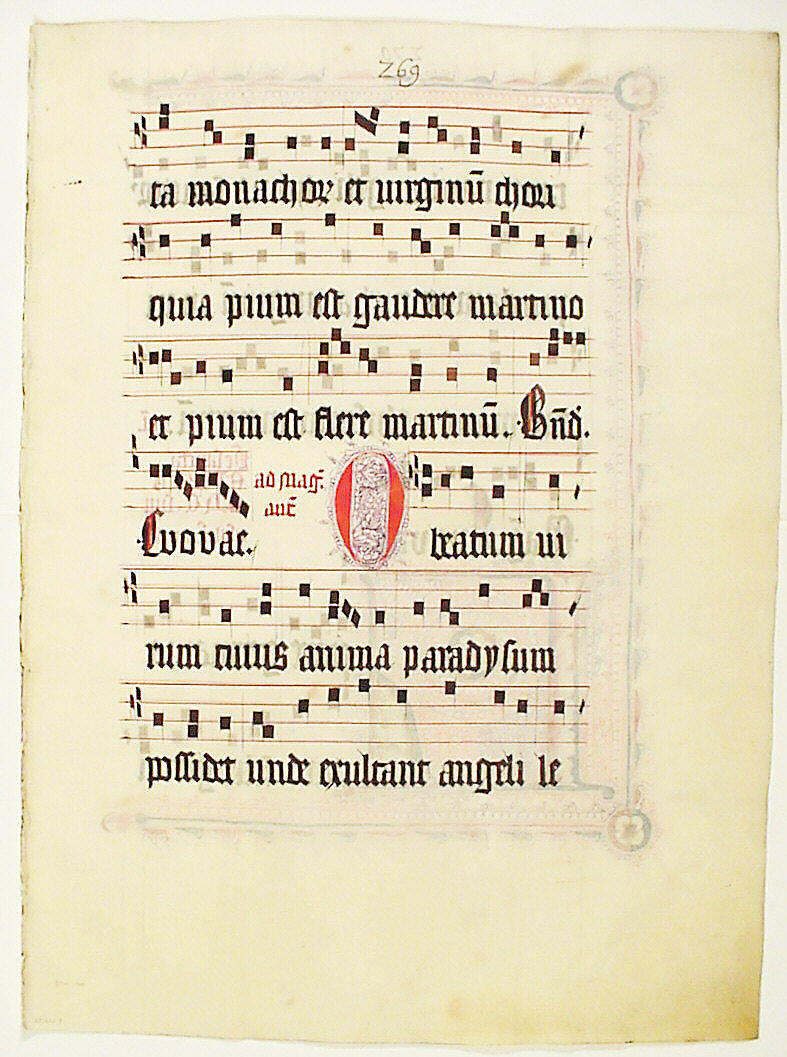 269
ta monachoꝝ et uirginū chori
quia pium est gaudere martino
et pium est flere martinū. Bn̄d̄.
Euouae. ad mag̅. an̄t O beatum ui
rum cuius anima paradysum
possidet unde exultant angeli le